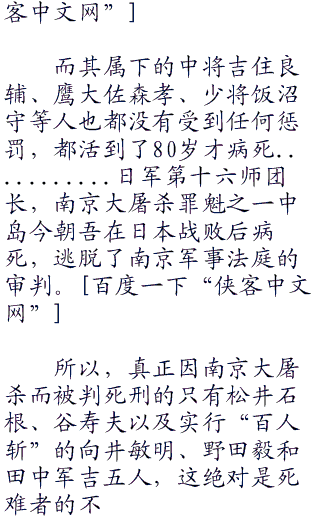 客中文网”]
而其属下的中将吉住良
辅、鹰大佐森孝、少将饭沼
守等人也都没有受到任何惩
罚，都活到了80岁才病死..
..........日军第十六师团
长，南京大屠杀罪魁之一中
岛今朝吾在日本战败后病
死，逃脱了南京军事法庭的
审判。[百度一下“侠客中文
网”]
所以，真正因南京大屠
杀而被判死刑的只有松井石
根、谷寿夫以及实行“百人
斩”的向井敏明、野田毅和
田中军吉五人，这绝对是死
难者的不